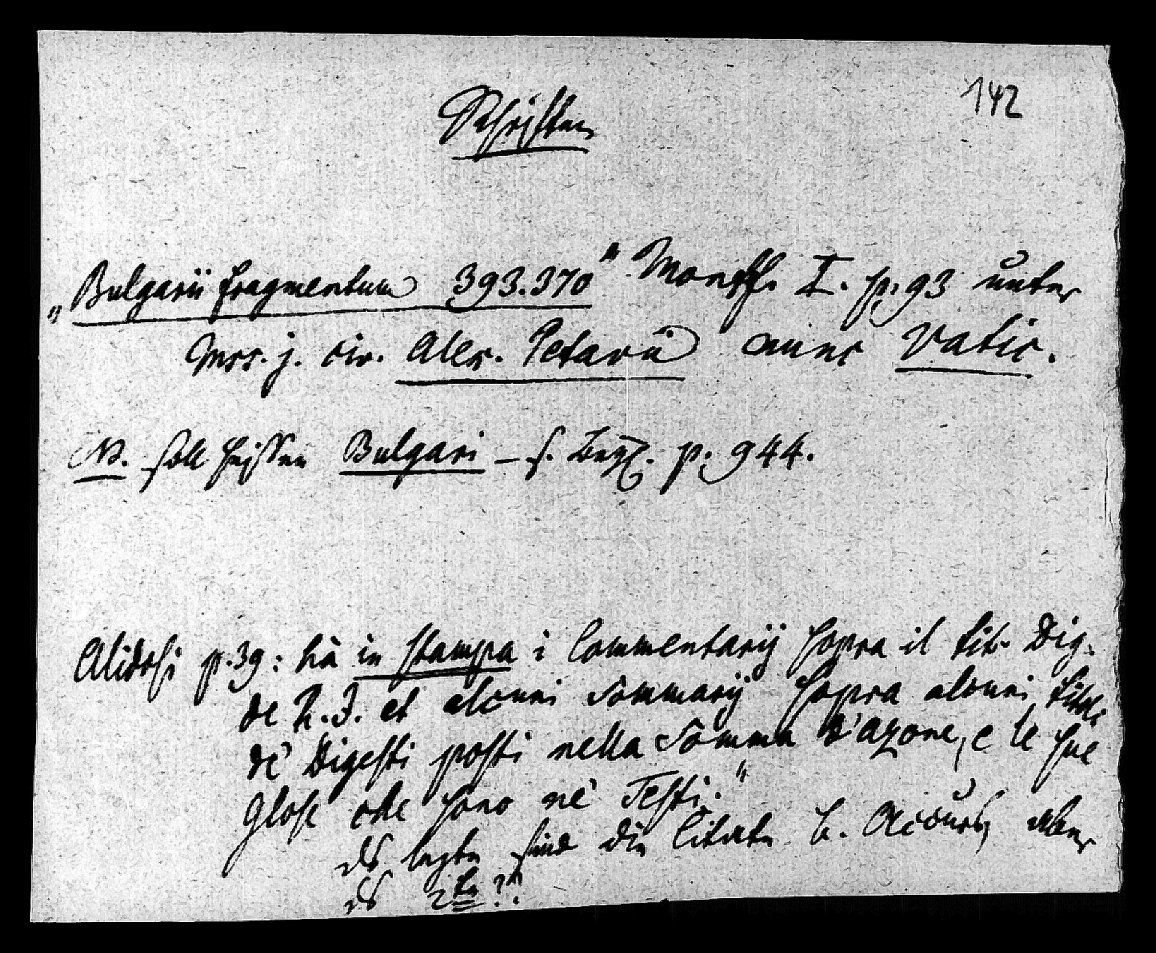 142
Schriften
„Bulgarii fragmentum 393.370" Montf. I. p. 93 unter
Mss. j. civ. Alex. Petavii nunc Vatic.
NB. soll heissen Bulgari – s. p. 944.
Alidosi p. 39: hà in stampa i Commentarij sopra il tit. Dig.
de R. J. et alcuni Sommarij sopra alcuni titoli
dè Digesti posti nella Somma d'Azone, e le sue
Glose che sono nè Testi."
das letzte sind die Citate b. Accurs, aber
das 2te??